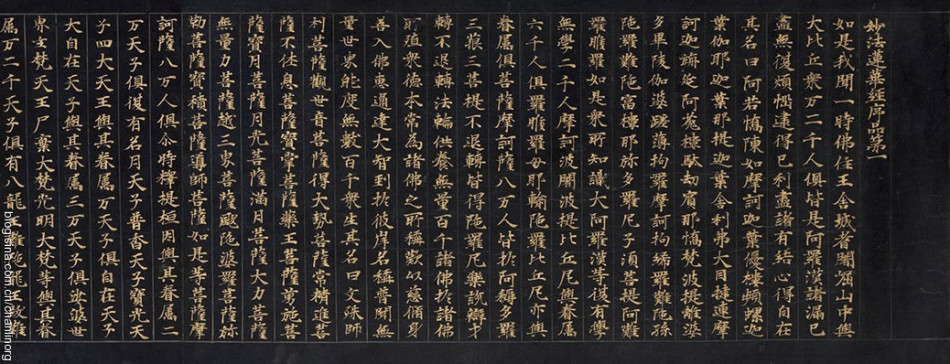 妙法蓮華經序品第一
如是我聞一時佛住王舍城耆闍崛山中與
大比丘衆万二千人俱皆是阿羅漢諸漏已
盡無復煩惱逮得己利盡諸有結心得自在
其名曰阿若憍陳如摩訶迦葉優樓頻螺迦
葉伽耶迦葉那提迦葉舍利弗大目揵連摩
訶迦旃延阿㝹樓馱劫賓那憍梵波提離婆
多畢陵伽婆蹉薄拘羅摩訶拘絺羅難陁孫
陁羅難陁富樓那弥多羅尼子須菩提阿難
羅睺羅如是衆所知識大阿羅漢等復有學
無學二千人摩訶波闍波提比丘尼與眷属
六千人俱羅睺羅母耶輸陁羅比丘尼亦與
眷属俱菩薩摩訶薩八万人皆於阿耨多羅
三藐三菩提不退轉皆得陁羅尼樂說辯才
轉不退轉法輪供養無量百千諸佛於諸佛
所殖衆德本常爲諸佛之所稱歎以慈修身
善入佛惠通達大智到於彼岸名稱普聞無
量世界能度無數百千衆生其名曰文殊師
利菩薩觀世音菩薩得大勢菩薩常精進菩
薩不休息菩薩寶掌菩薩藥王菩薩勇施菩
薩寶月菩薩月光菩薩滿月菩薩大力菩薩
無量力菩薩越三界菩薩颰陁婆羅菩薩弥
勒菩薩寶積菩薩導師菩薩如是等菩薩摩
訶薩八万人俱尒時釋提桓因與其眷属二
万天子俱復有名月天子普香天子寶光天
子四大天王與其眷属万天子俱自在天子
大自在天子與其眷属三万天子俱娑婆世
界主梵天王尸棄大梵光明大梵等與其眷
属万二千天子俱有八龍王難陁龍王跋難
blog.sina.com.cn/chanlin.org